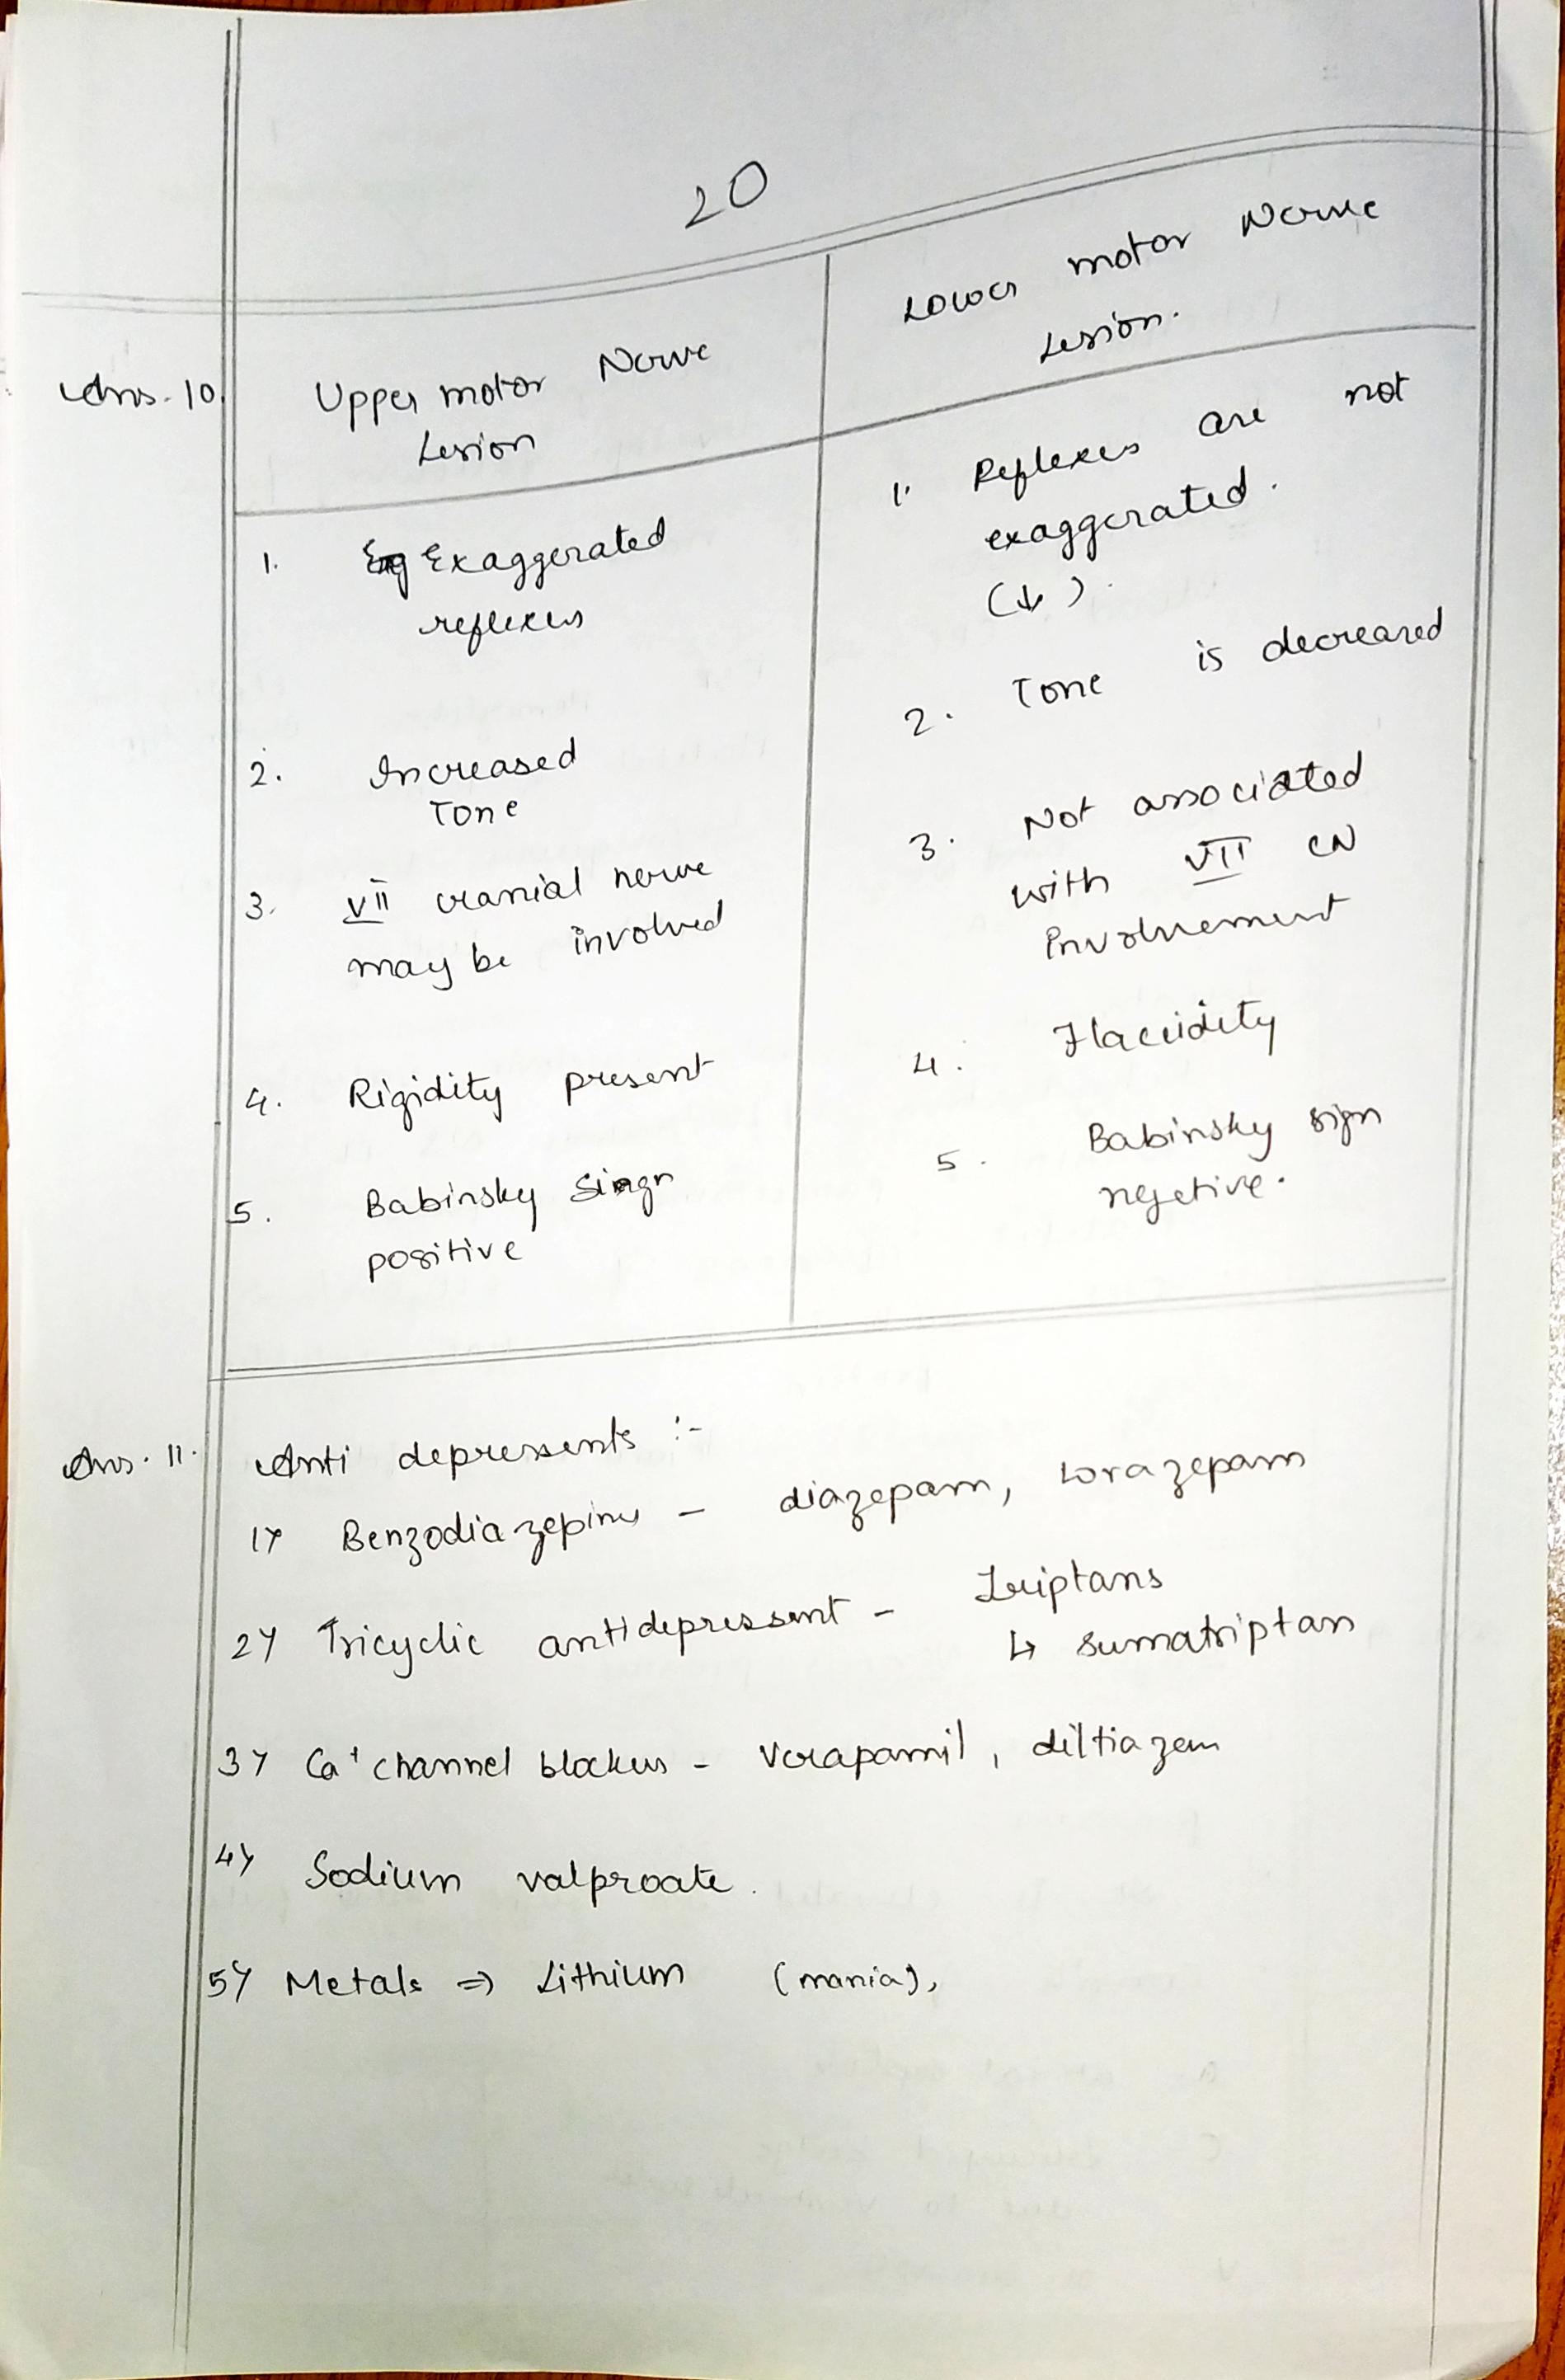 20
Ans. 10.
Upper motor Nerve
Lesion
Lower motor Nerve
Lesion.
1. Exaggerated
reflexes
1. Reflexes are not
exaggerated.
(↓).
2. Increased
Tone
2. Tone is decreased
3. VII cranial nerve
may be involved
3. Not associated
with VII CN
involvement
4. Rigidity present
4. Flaccidity
5. Babinsky Singn
positive
5. Babinsky sign
negetive.
Ans. 11. Anti depressents :-
1) Benzodiazepines - diazepam, Lorazepam
2) Tricyclic antidepressent - Triptans
↳ sumatriptan
3) Ca+ channel blockers - Verapamil, diltiazem
4) Sodium valproate.
5) Metals ⇒ Lithium (mania),